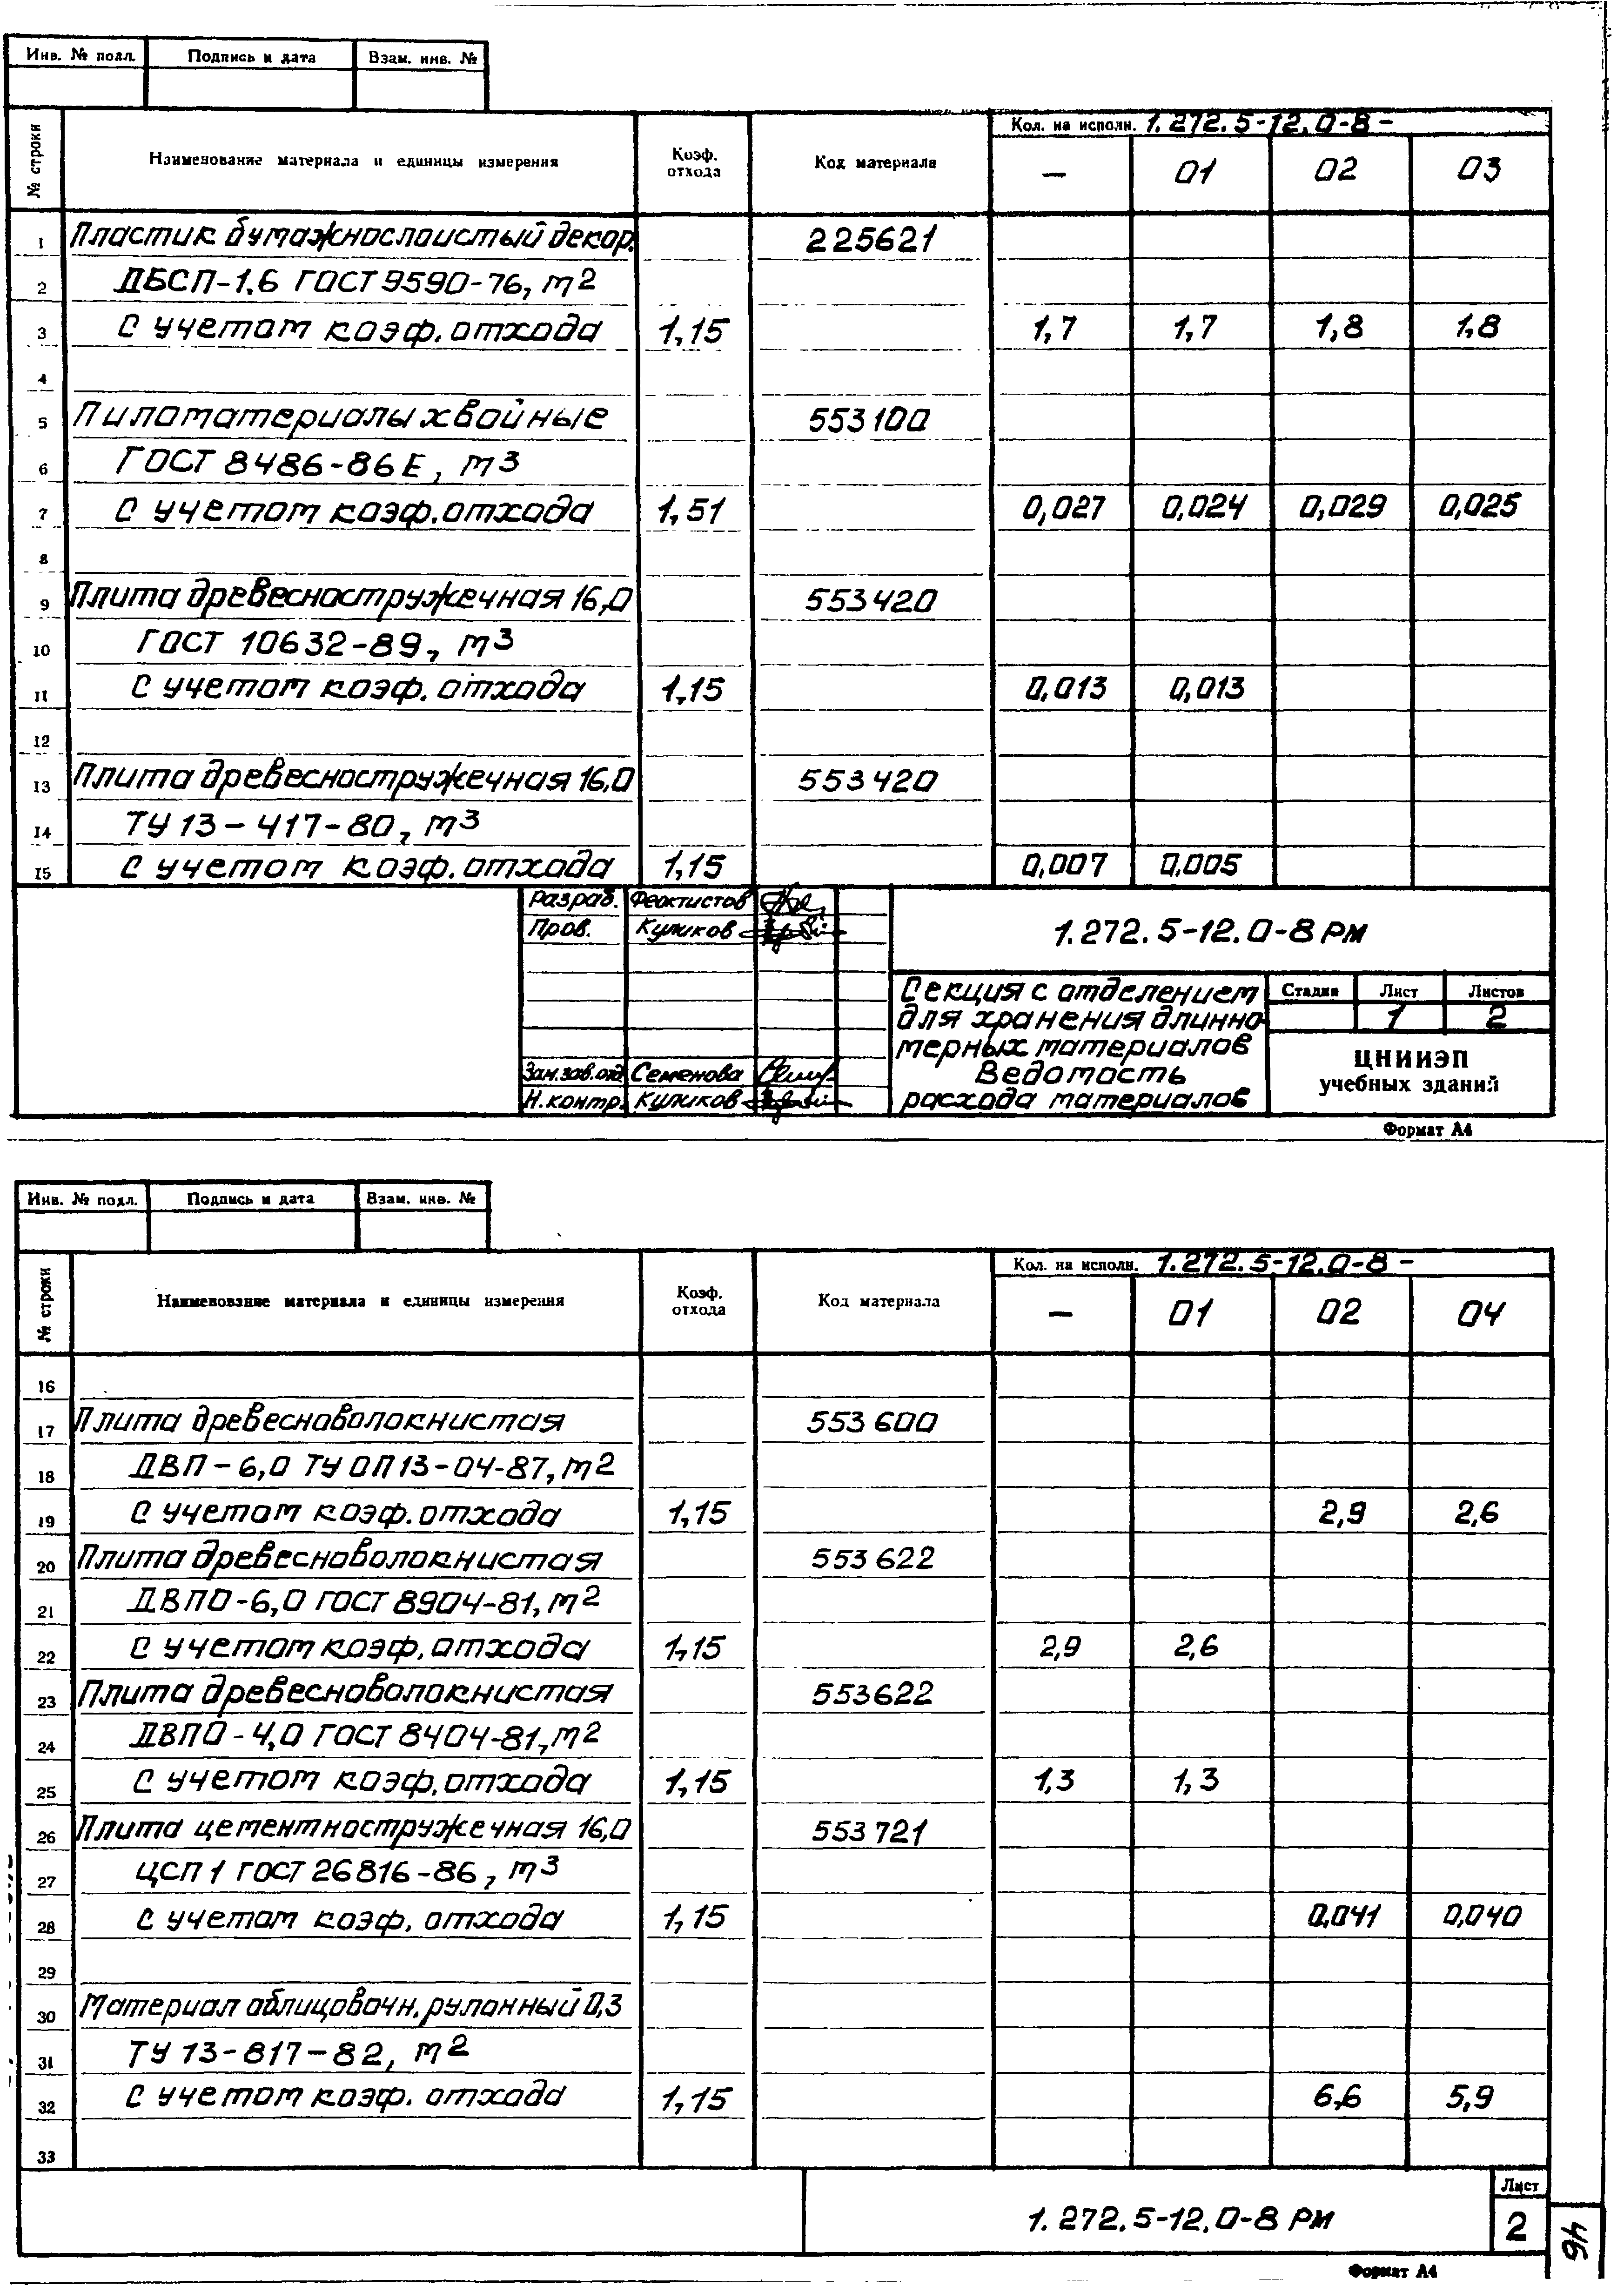 Инв. № подл. Подпись и дата Взам. инв. №
№ строки Наименование материала и единицы измерения Коэф. отхода Код материала Кол. на исполн. 1.272.5-12.0-8 -
— 01 02 03
1 Пластик бумажнослоистый декор. 225621
2 ДБСП-1.6 ГОСТ 9590-76, м2
3 С учетом коэф. отхода 1,15 1,7 1,7 1,8 1,8
4
5 Пиломатериалы хвойные 553100
6 ГОСТ 8486-86Е, м3
7 С учетом коэф. отхода 1,51 0,027 0,024 0,029 0,025
8
9 Плита древесностружечная 16,0 553420
10 ГОСТ 10632-89, м3
11 С учетом коэф. отхода 1,15 0,013 0,013
12
13 Плита древесностружечная 16,0 553420
14 ТУ 13-417-80, м3
15 С учетом коэф. отхода 1,15 0,007 0,005
Разраб. Феоктистов
Пров. Куликов
1.272.5-12.0-8 РМ
Секция с отделением
для хранения длинно-
мерных материалов
Ведомость
расхода материалов
Стадия Лист Листов
1 2
ЦНИИЭП
учебных зданий
Зам.зав.отд Семенова
Н.контр. Куликов
Формат А4
Инв. № подл. Подпись и дата Взам. инв. №
№ строки Наименование материала и единицы измерения Коэф. отхода Код материала Кол. на исполн. 1.272.5-12.0-8 -
— 01 02 04
16
17 Плита древесноволокнистая 553600
18 ДВП-6,0 ТУ ОП13-04-87, м2
19 С учетом коэф. отхода 1,15 2,9 2,6
20 Плита древесноволокнистая 553622
21 ДВПО-6,0 ГОСТ 8904-81, м2
22 С учетом коэф. отхода 1,15 2,9 2,6
23 Плита древесноволокнистая 553622
24 ДВПО-4,0 ГОСТ 8404-81, м2
25 С учетом коэф. отхода 1,15 1,3 1,3
26 Плита цементностружечная 16,0 553721
27 ЦСП 1 ГОСТ 26816-86, м3
28 С учетом коэф. отхода 1,15 0,041 0,040
29
30 Материал облицовочн. рулонный 0,3
31 ТУ 13-817-82, м2
32 С учетом коэф. отхода 1,15 6,6 5,9
33
1.272.5-12.0-8 РМ
Лист
2
46
Формат А4